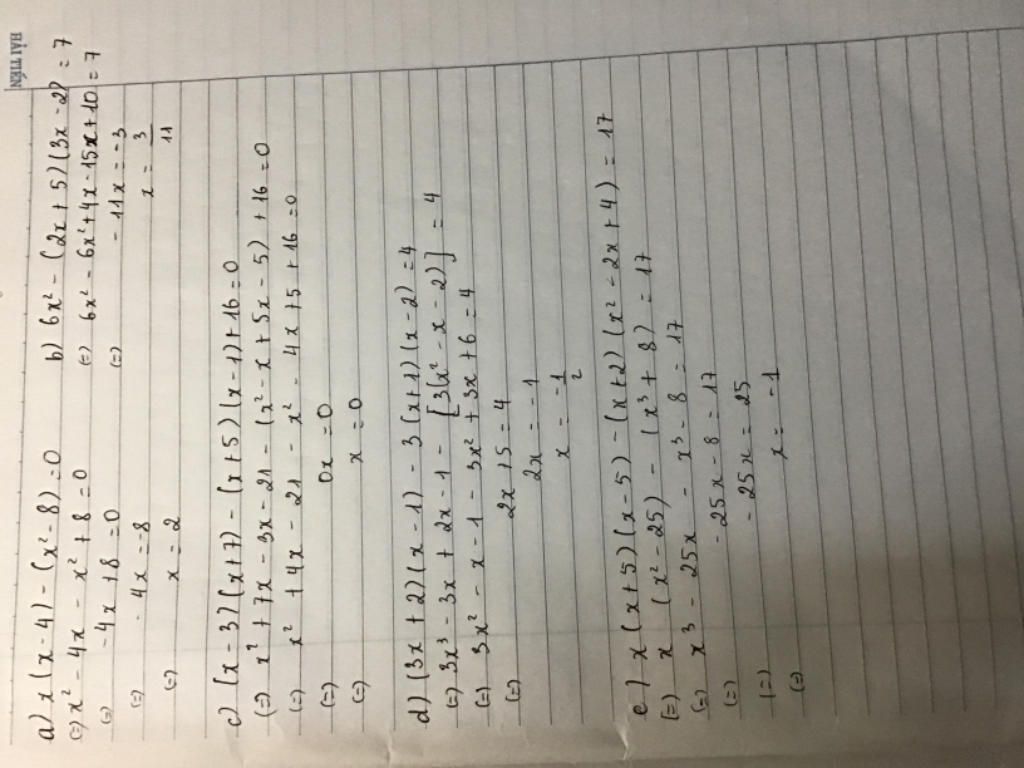 HẢI TIẾN
a) x(x-4) - (x²-8) = 0
(=) x² - 4x - x² + 8 = 0
(=) -4x + 8 = 0
(=) -4x = -8
(=) x = 2
b) 6x² - (2x+5)(3x-2) = 7
(=) 6x² - 6x² + 4x - 15x + 10 = 7
(=) -11x = -3
x = 3/11
c) (x-3)(x+7) - (x+5)(x-1) + 16 = 0
(=) x² + 7x - 3x - 21 - (x² - x + 5x - 5) + 16 = 0
(=) x² + 4x - 21 - x² - 4x + 5 + 16 = 0
(=) 0x = 0
(=) x = 0
d) (3x+2)(x-1) - 3(x+1)(x-2) = 4
(=) 3x³ - 3x + 2x - 1 - [3(x² - x - 2)] = 4
(=) 3x² - x - 1 - 3x² + 3x + 6 = 4
(=) 2x + 5 = 4
2x = -1
x = -1/2
e) x(x+5)(x-5) - (x+2)(x² - 2x + 4) = 17
(=) x(x² - 25) - (x³ + 8) = 17
(=) x³ - 25x - x³ - 8 = 17
(=) -25x - 8 = 17
(=) -25x = 25
(=) x = -1